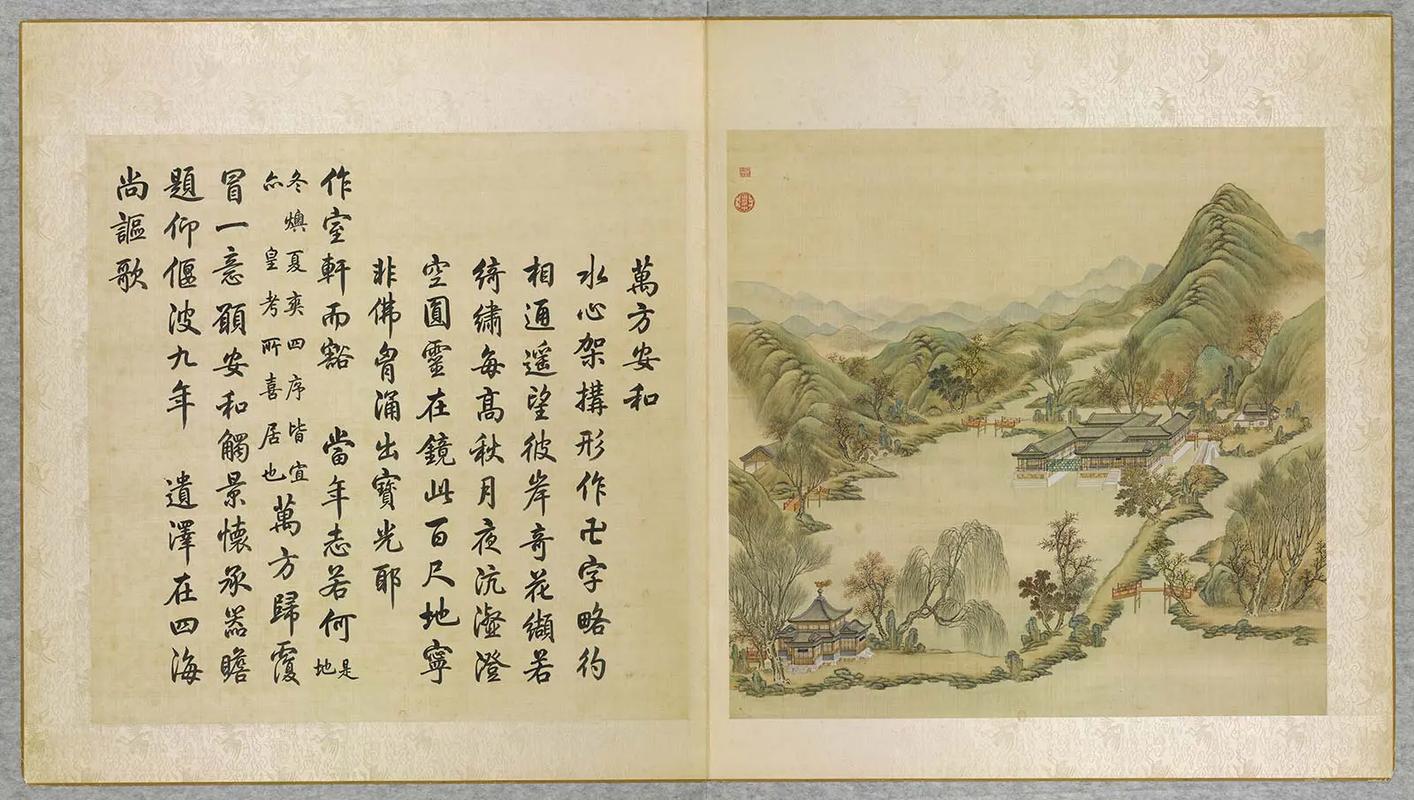 萬方安和
水心架搆形作卍字略彴
相通遥望彼岸奇花纈若
綺繡每高秋月夜沆瀣澄
空圓靈在鏡此百尺地寧
非佛胷涌出寶光耶
作室軒而豁 當年志若何 是地
冬燠夏爽四序皆宜
亦 皇考所喜居也 萬方歸覆
冒一意願安和觸景懷承器瞻
題仰偃波九年 遺澤在四海
尚謳歌